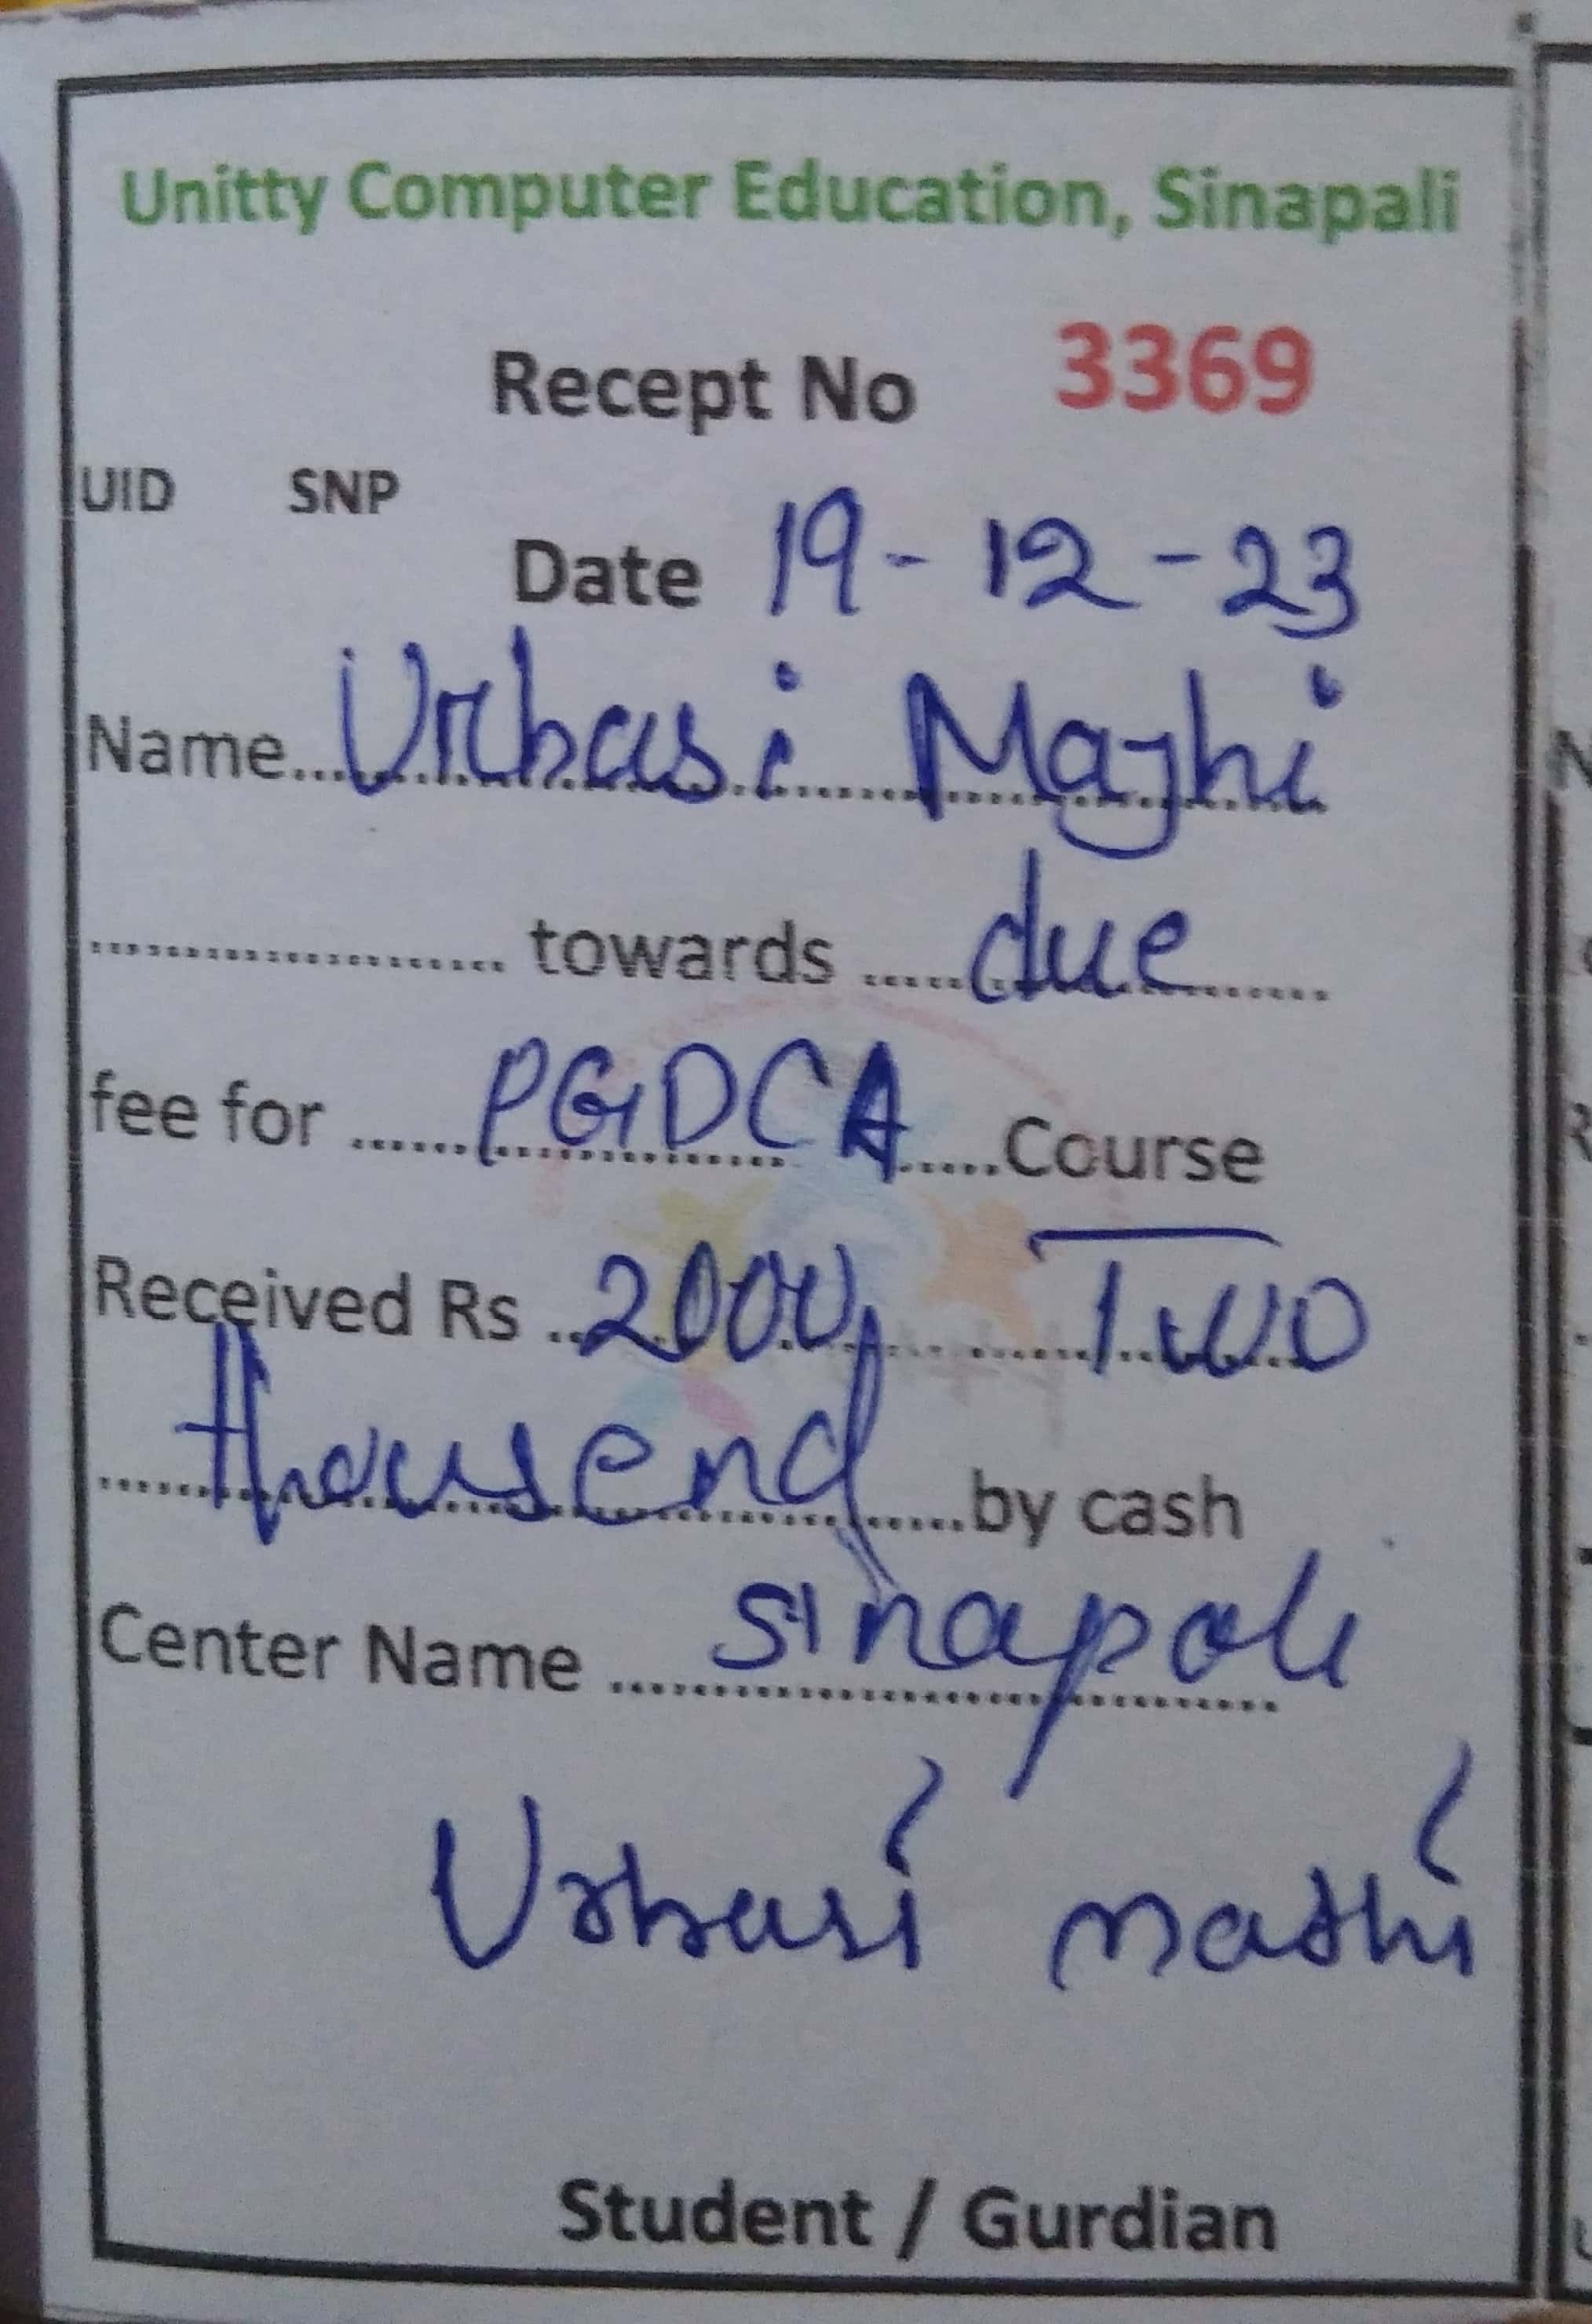 Unitty Computer Education, Sinapali
Recept No 3369
UID SNP
Date 19-12-23
Name.....Urbasi Majhi
..................... towards .....due.......
fee for ......PGDCA.....Course
Received Rs ..2000/ ........Two
.....thousend.....by cash
Center Name ....sinapali
Urbasi mathi
Student / Gurdian